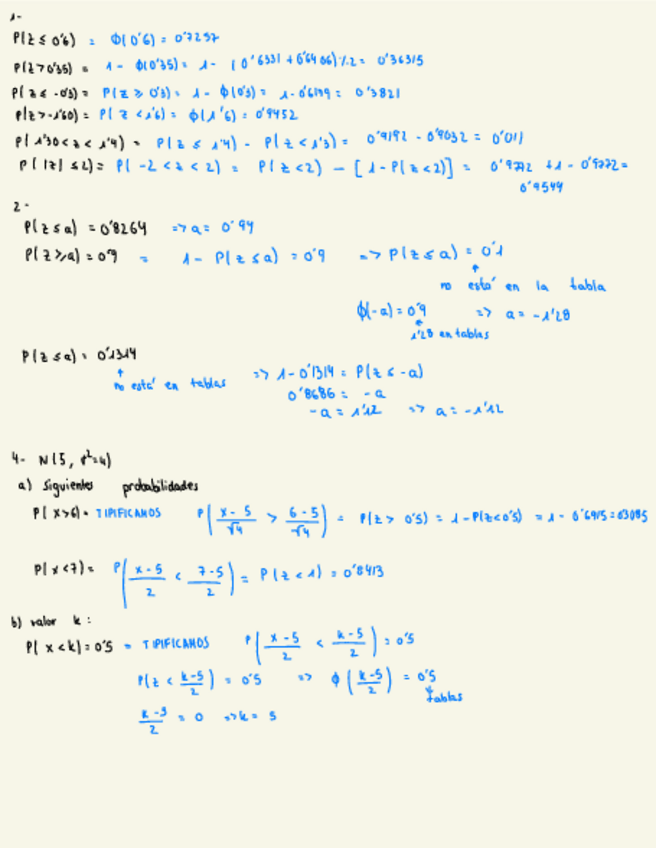 1-
P(z ≤ 0'6) = ϕ(0'6) = 0'7257
P(z > 0'35) = 1 - ϕ(0'35) = 1 - (0'6331 + 0'6406)/2 = 0'36315
P(z ≤ -0'3) = P(z ≥ 0'3) = 1 - ϕ(0'3) = 1 - 0'6179 = 0'3821
P(z > -1'60) = P(z < 1'6) = ϕ(1'6) = 0'9452
P(1'30 < z < 1'4) = P(z ≤ 1'4) - P(z < 1'3) = 0'9192 - 0'9032 = 0'011
P(|z| ≤ 2) = P(-2 < z < 2) = P(z < 2) - [1 - P(z < 2)] = 0'9772 + 1 - 0'9772 =
0'9544
2-
P(z ≤ a) = 0'8264 => a = 0'94
P(z ≥ a) = 0'9 = 1 - P(z ≤ a) = 0'9 => P(z ≤ a) = 0'1
no está en la tabla
ϕ(-a) = 0'9 => a = -1'28
1'28 en tablas
P(z ≤ a) = 0'1314
no está en tablas => 1 - 0'1314 = P(z ≤ -a)
0'8686 = -a
-a = 1'12 => a = -1'12
4- N(5, σ²=4)
a) siguientes probabilidades
P(x > 6) = TIPIFICAMOS P(x-5/√4 > 6-5/√4) = P(z > 0'5) = 1 - P(z < 0'5) = 1 - 0'6915 = 0'3085
P(x < 7) = P(x-5/2 < 7-5/2) = P(z < 1) = 0'8413
b) valor k:
P(x < k) = 0'5 = TIPIFICAMOS P(x-5/2 < k-5/2) = 0'5
P(z < k-5/2) = 0'5 => ϕ(k-5/2) = 0'5
tablas
k-5/2 = 0 => k = 5